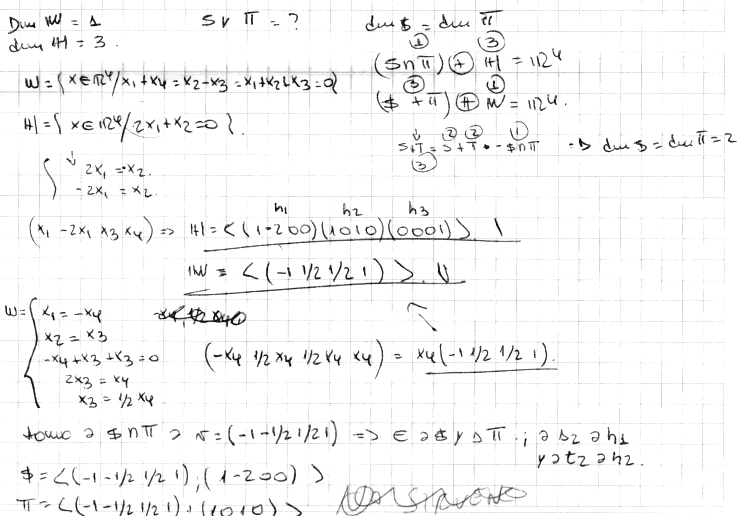 Dim W = 1
dim H = 3.
S y π = ?
dim $ = dim π
① ③
($∩π) ⊕ H = R⁴
③ ①
($+π) ⊕ W = R⁴.
W = { x∈R⁴/x₁+x₄=x₂-x₃=x₁+x₂+x₃=0}
H = { x∈R⁴/2x₁+x₂=0 }.
② ② ①
S+T = S+T - $∩π ⇒ dim $ = dim π = 2
③
2x₁ = -x₂.
-2x₁ = x₂.
h₁ h₂ h₃
(x₁ -2x₁ x₃ x₄) ⇒ H = <(1-200)(1010)(0001)>
W = <(-1 1/2 1/2 1)>.
W =
x₁ = -x₄
x₂ = x₃
-x₄+x₃+x₃=0
2x₃ = x₄
x₃ = 1/2 x₄
(-x₄ 1/2 x₄ 1/2 x₄ x₄) = x₄(-1 1/2 1/2 1).
tomo a $∩π a v=(-1-1/2 1/2 1) ⇒ ∈ a $ y a π.; a s₂ a h₁
y a t₂ a h₂.
$ = <(-1-1/2 1/2 1),(1-200)>
π = <(-1-1/2 1/2 1),(1010)>